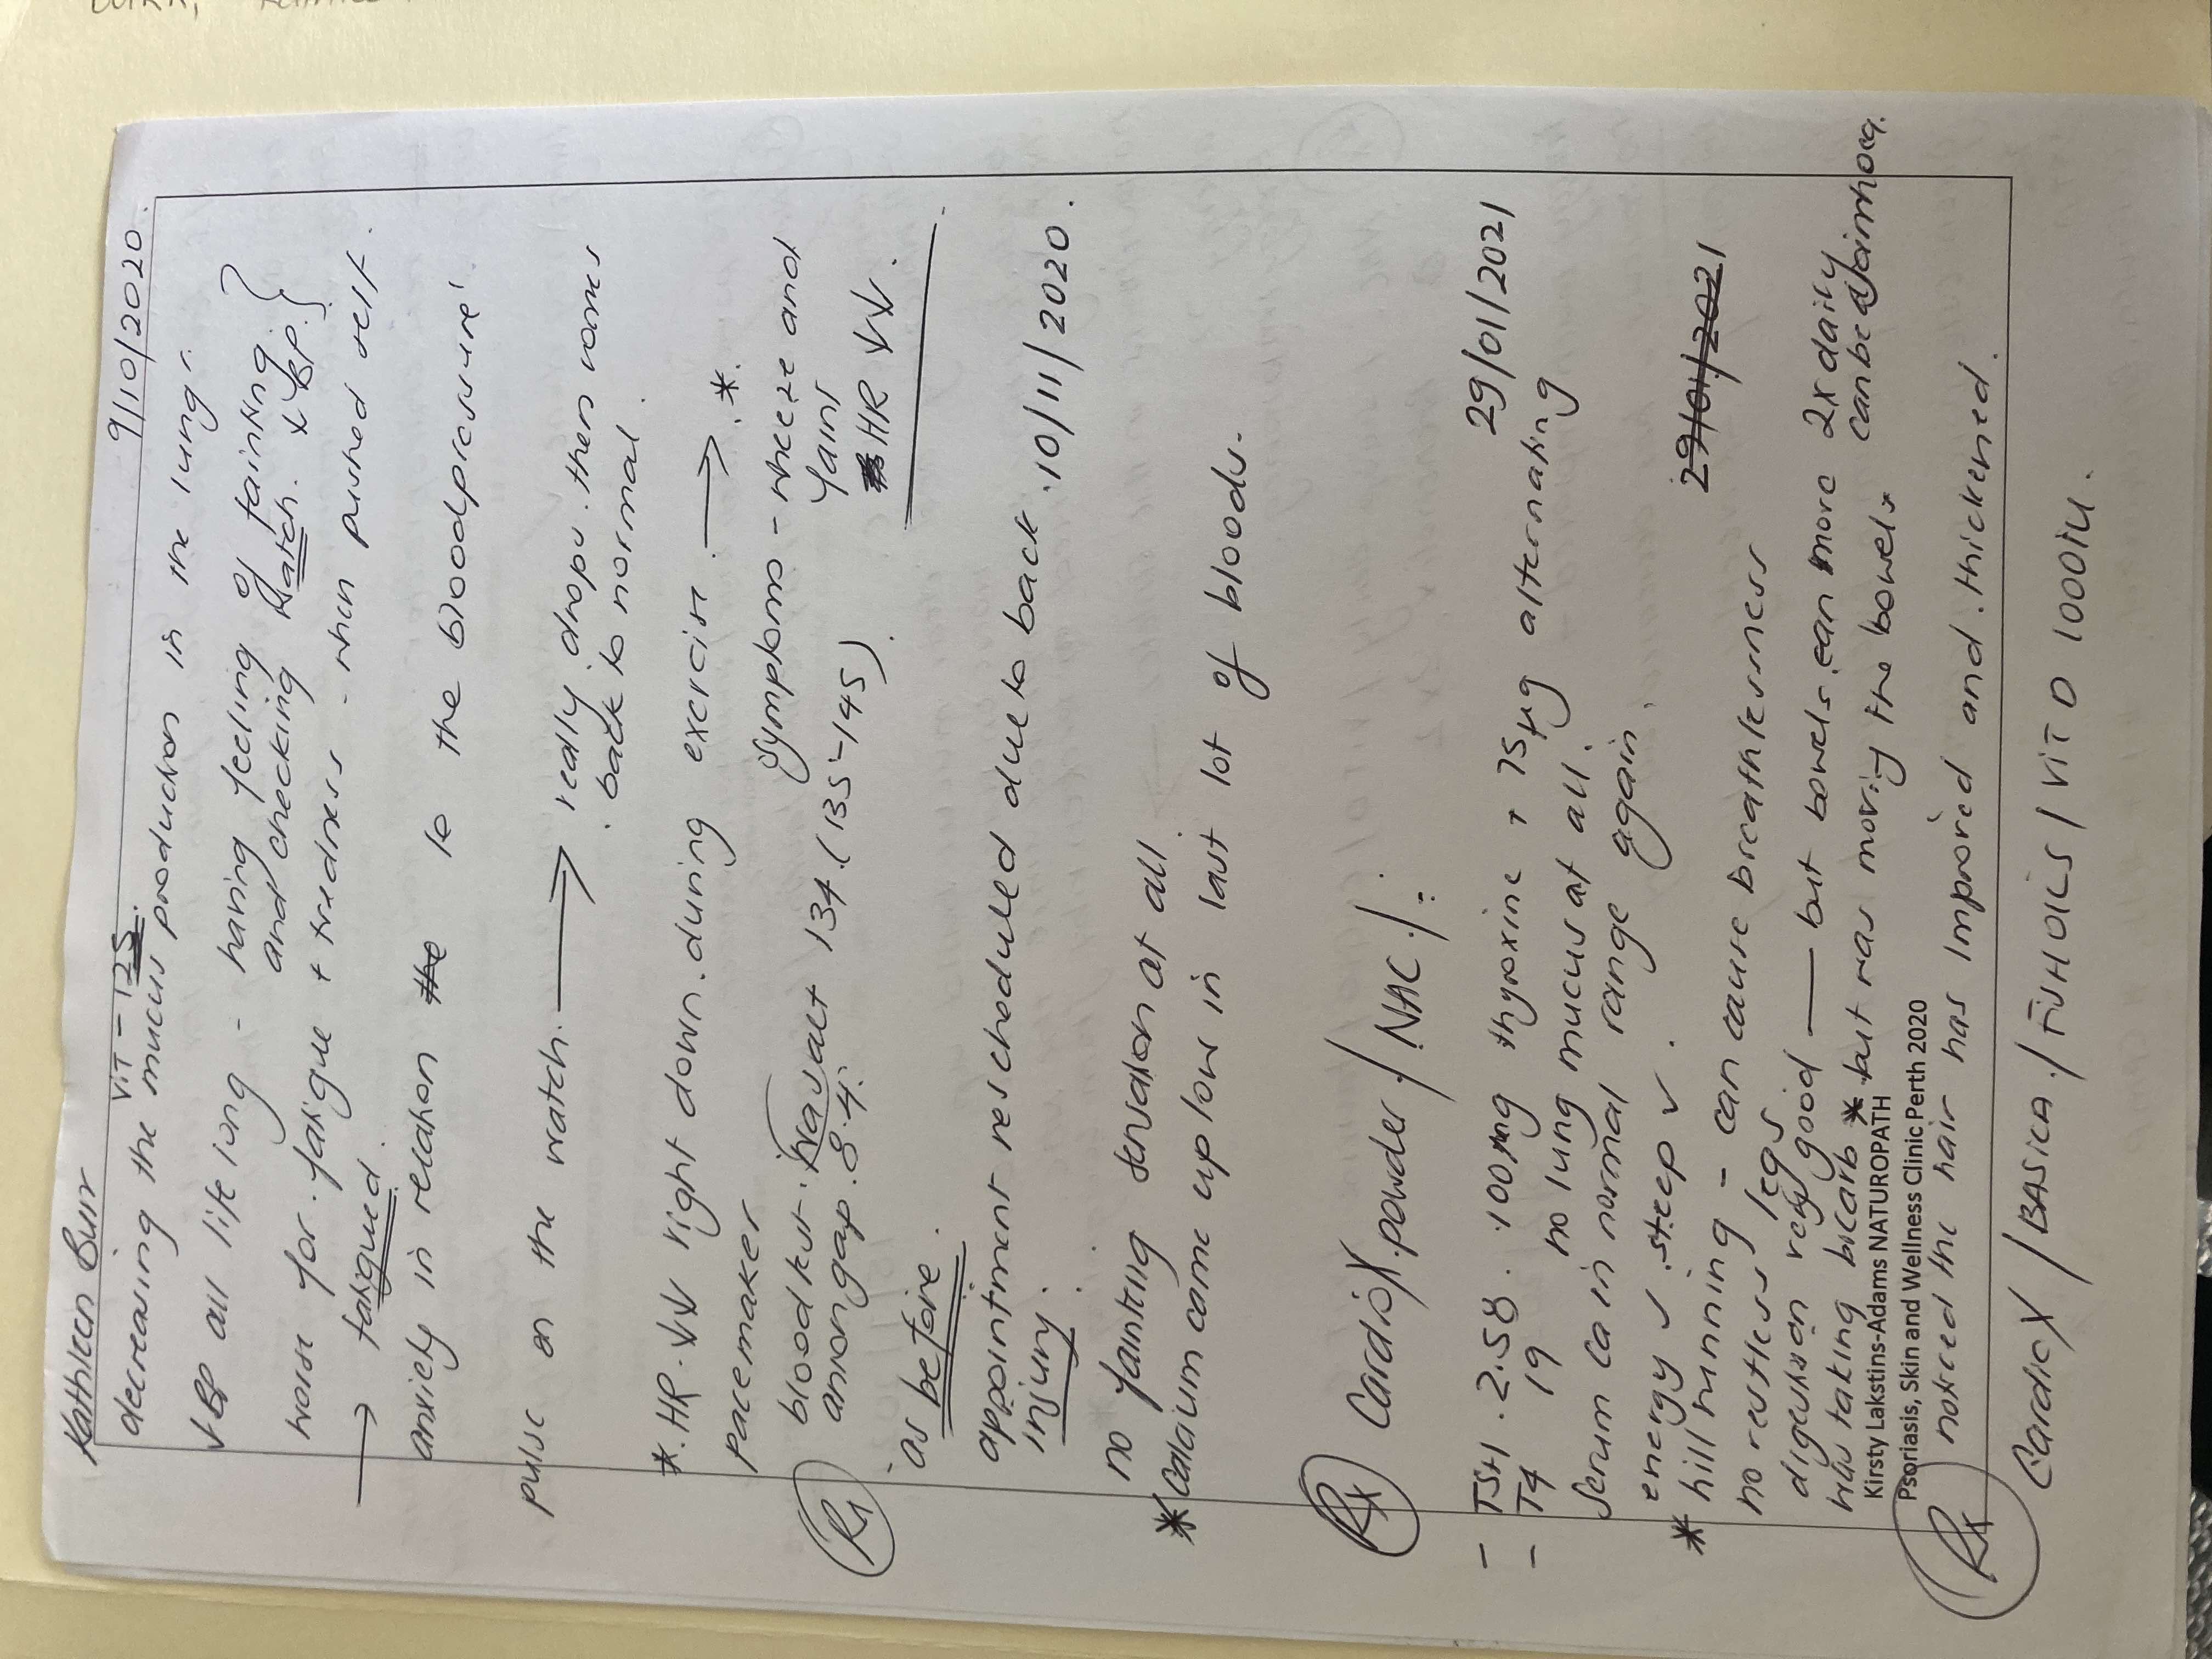 Kathleen Burr 9/10/2020.
VIT - 125.
decreasing the mucus production in the lungs
↓BP all life long - having feeling of fainting
and checking watch. x ↓BP. }
worse for. fatigue + tiredness - when pushed self.
→ fatigued.
anxiety in relation the to the bloodpressure
pulse on the watch. → really drops. then comes
. back to normal.
*. HR. ↓↓ right down. during exercise. → *.
pacemaker Symptoms - wheeze and
faint
bloodkur. salt 134. (135-145) HR ↓↓.
aniongap. 8.4.
Rx as before.
appointment rescheduled due to back. 10/11/2020.
injury.
no fainting sensation at all.
* Calcium came up low in last lot of bloods.
Rx CardioX powder / NAC /.
29/01/2021
- TSH. 2.58. 100mg thyroxine + 75µg alternating
- T4 19 no lung mucus at all.
Serum Ca in normal range again.
energy ✓ sleep ✓. 29/01/2021
* hill running - can cause breathlessness
no restless legs
digestion very good — but bowels can more 2x daily
was taking bicarb * but was moving the bowels * can be diarrhoea.
Kirsty Lakstins-Adams NATUROPATH
Psoriasis, Skin and Wellness Clinic Perth 2020
noticed the hair has improved and. thickened.
Rx CardioX / BASICA / FISHOILS / VIT D 1000iu.